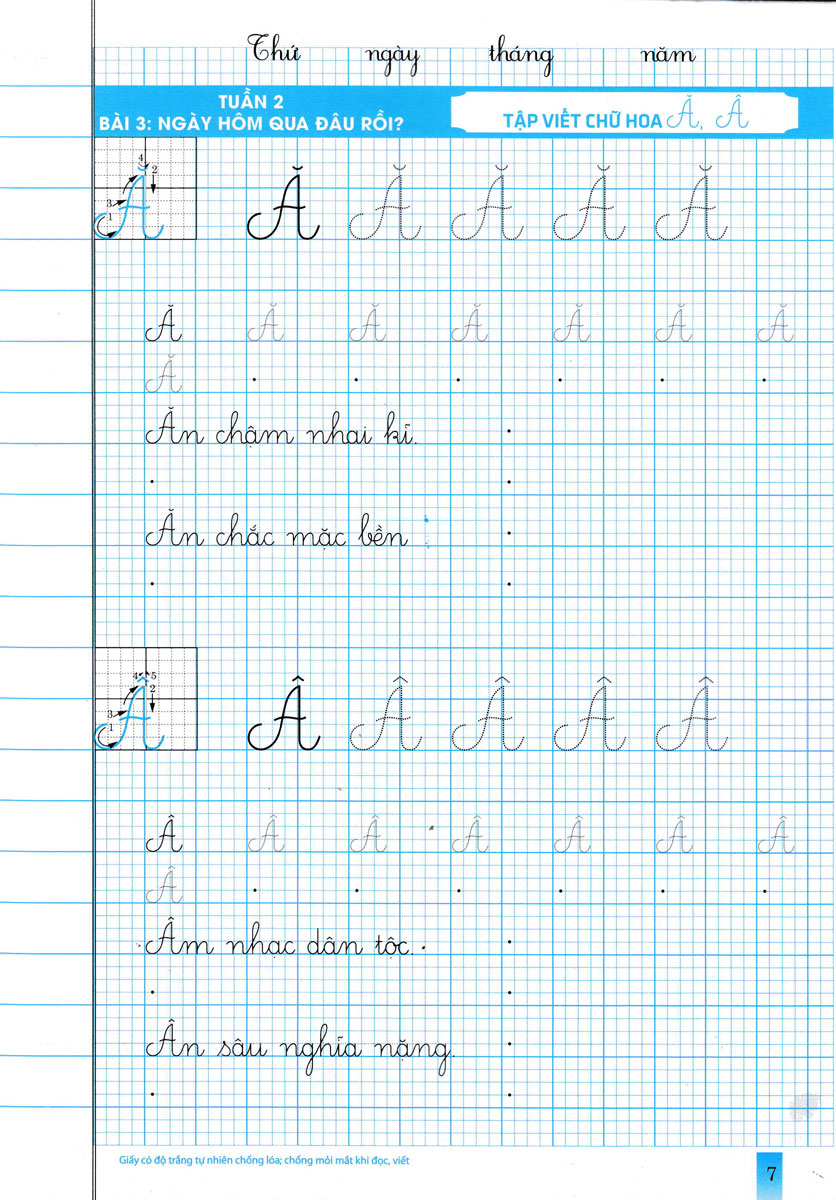 Thứ ngày tháng năm
TUẦN 2
BÀI 3: NGÀY HÔM QUA ĐÂU RỒI?
TẬP VIẾT CHỮ HOA Ă, Â
4 2 3 1 Ă Ă Ă Ă Ă Ă
Ă Ă Ă Ă Ă Ă Ă
Ă . . . . . .
Ăn chậm nhai kĩ. .
. .
Ăn chắc mặc bền .
. .
4 5 2 3 1 Â Â Â Â Â Â
Â Â Â Â Â Â Â
Â . . . . . .
Âm nhạc dân tộc. .
. .
Ân sâu nghĩa nặng. .
. .
Giấy có độ trắng tự nhiên chống lóa; chống mỏi mắt khi đọc, viết
7